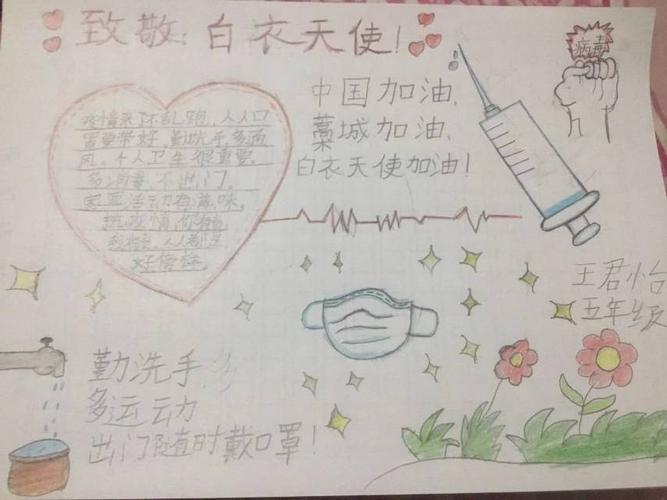 致敬:白衣天使!
病毒
中国加油,
藁城加油,
白衣天使加油!
疫情来了不乱跑,人人口
罩要带好,勤洗手,多通
风,个人卫生很重要。
多消毒,不出门。
家里活动有滋味。
抗疫情,你有我
我有你,人人都是
好榜样。
王君怡
五年级
勤洗手
多运动
出门随时戴口罩!